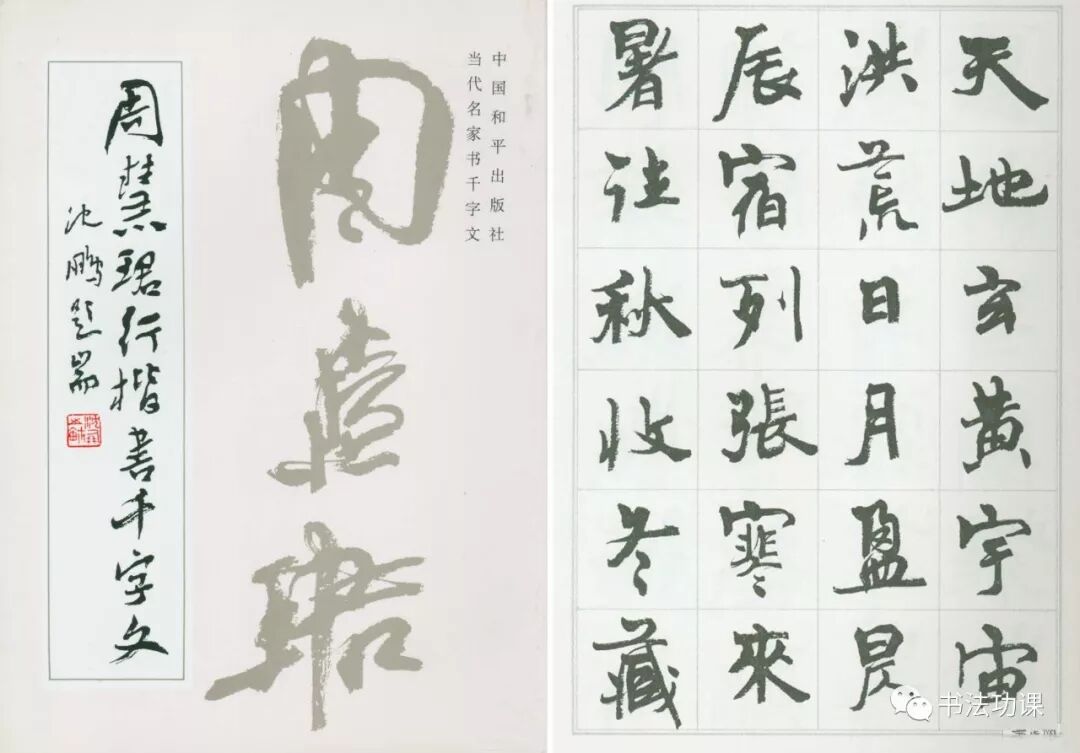 中国和平出版社
当代名家书千字文
周慧珺
周慧珺行楷書千字文
沈鹏题耑
天地玄黄宇宙
洪荒日月盈昃
辰宿列張寒來
暑往秋收冬藏
书法功课